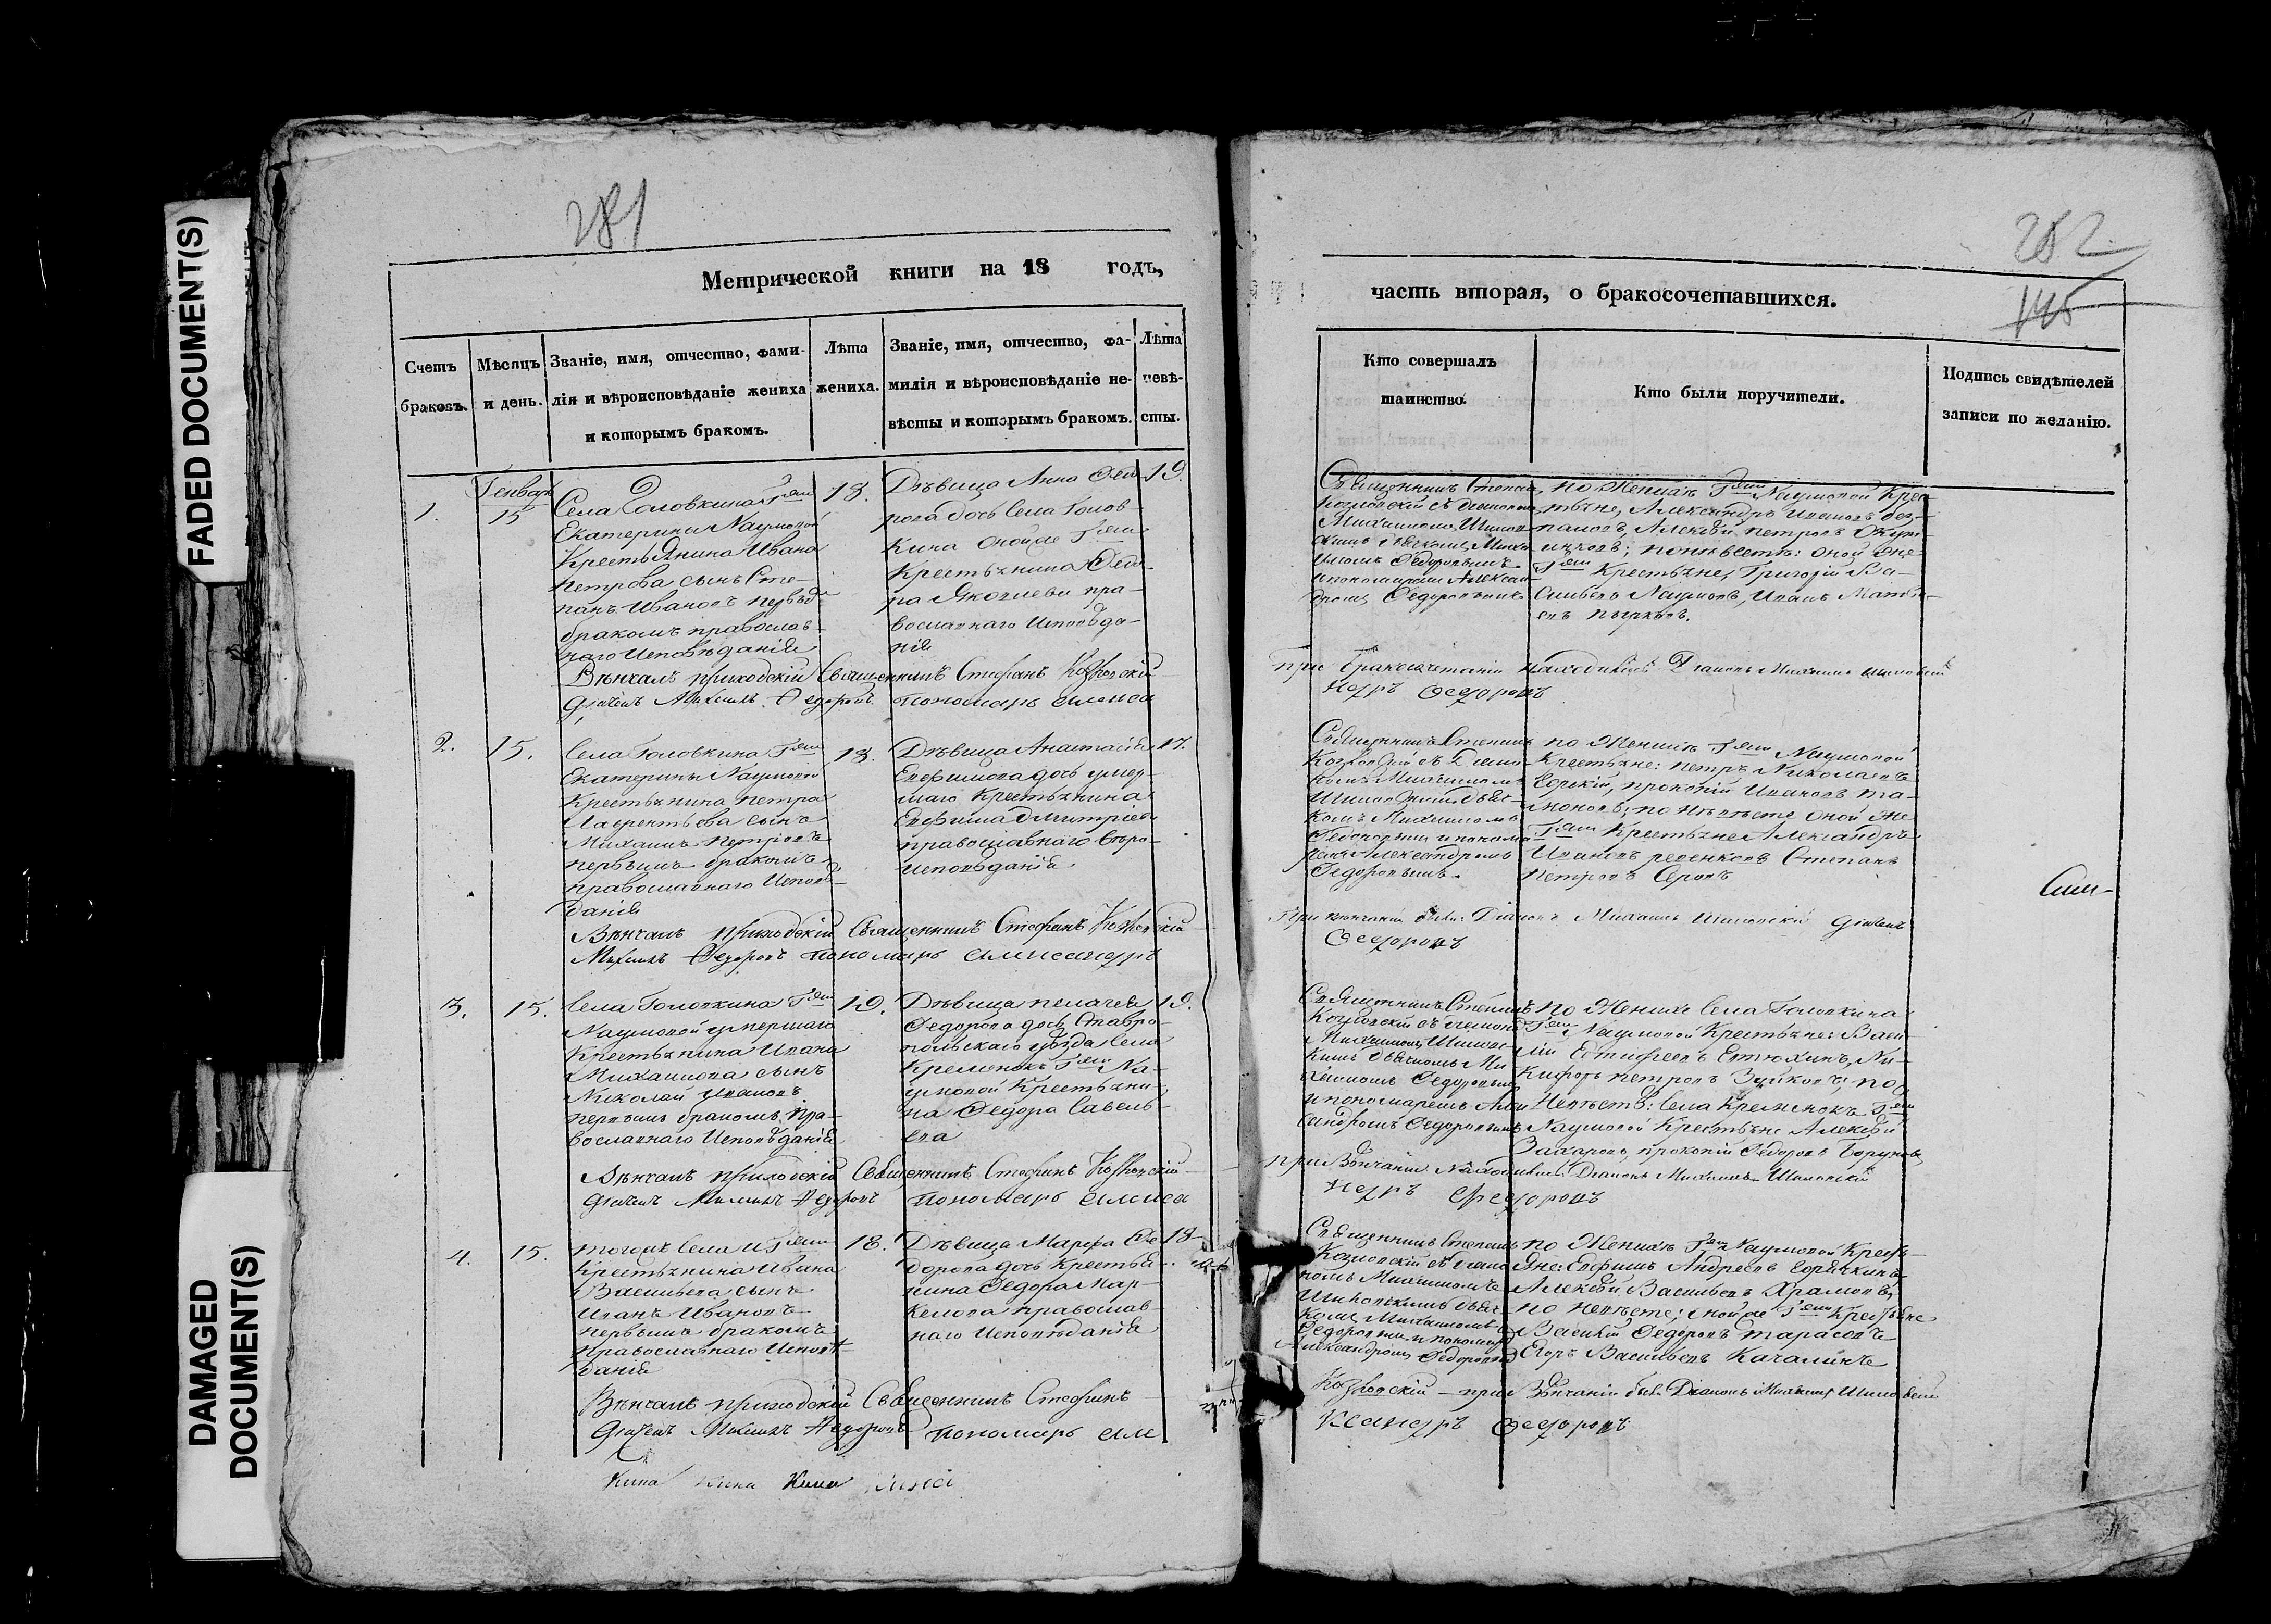 FADED DOCUMENT(S)
DAMAGED DOCUMENT(S)
281
Метрической книги на 18 годъ,
Счетъ браковъ.
Мѣсяцъ и день.
Званіе, имя, отчество, фами-
лія и вѣроисповѣданіе жениха
и которымъ бракомъ.
Лѣта жениха.
Званіе, имя, отчество, фа-
милія и вѣроисповѣданіе не-
вѣсты и которымъ бракомъ.
Лѣта невѣ-
сты.
1.
Генварь
15
Села Головкина Гжи
Екатерины Наумовой
Крестьянина Ивана
Петрова сынъ Сте-
панъ Ивановъ первы
бракомъ православ-
наго Исповѣданія
18.
Дѣвица Анна Федо
рова дочь Села Голов-
кина оной же Гжи
Крестьянина Федо-
ра Яковлева пра-
вославнаго Исповѣда-
нія
19.
Вѣнчалъ приходскій Священникъ Стефанъ Козловскій
Дьячекъ Михаилъ Федоровъ Пономарь Алекса
2.
15.
Села Головкина Гжи
Екатерины Наумовой
Крестьянина Петра
Лаврентьева сынъ
Михаилъ Петровъ
первымъ бракомъ
православнаго Исповѣ-
данія
18.
Дѣвица Анастасія
Ефимова дочь умер-
шаго Крестьянина
Ефима Дмитріева
православнаго Вѣро-
исповѣданія
17.
Вѣнчалъ приходскій Священникъ Стефанъ Козловскій
Михаилъ Федоровъ Пономарь Александръ
3.
15.
Села Головкина Гжи
Наумовой умершаго
Крестьянина Ивана
Михайлова сынъ
Николай Ивановъ
первымъ бракомъ пра-
вославнаго Исповѣданія
19.
Дѣвица Пелагея
Федорова дочь Ставро-
польскаго уѣзда Села
Кременокъ Гжи На-
умовой Крестьяни-
на Федора Савель-
ева
19.
Вѣнчалъ приходскій Священникъ Стефанъ Козловскій
Дьячекъ Михаилъ Федоровъ Пономарь Алекса
4.
15.
Тогожъ Села и Гжи
Крестьянина Ивана
Васильева сынъ
Иванъ Ивановъ
первымъ бракомъ
Православнаго Исповѣ-
данія
18.
Дѣвица Марфа Фе
дорова дочь Крестья-
нина Федора Мар-
келова православ-
наго Исповѣданія
18
Вѣнчалъ приходскій Священникъ Стефанъ
Дьячекъ Михаилъ Федоровъ Пономарь Але
Кина Кина Кина
282
145
часть вторая, о бракосочетавшихся.
Кто совершалъ
таинство.
Кто были поручители.
Подпись свидѣтелей
записи по желанію.
Священникъ Степанъ
Козловскій съ діакономъ
Михаиломъ Шилов-
скимъ дьячкомъ Миха-
иломъ Федоровымъ
и пономаремъ Алексан-
дромъ Федоровымъ
по Женихѣ Гжи Наумовой Крес-
тьяне, Александръ Ивановъ
Алексѣй Петровъ
по невѣстѣ: оной же
Гжи Крестьяне, Григорій Ва-
сильевъ Наумовъ, Иванъ Матвѣ-
евъ
При Бракосочетаніи находился Діаконъ Михаилъ Шиловскій
ндръ Федоровъ
Священникъ Степанъ
Козловскій съ Діако-
номъ Михаиломъ
Шиловскимъ дьяч-
комъ Михаиломъ
Федоровымъ и понома-
ремъ Александромъ
Федоровымъ.
по Женихѣ Гжи Наумовой
Крестьяне: Петръ Николаевъ
Прокопій Ивановъ
по невѣстѣ оной же
Гжи Крестьяне Александръ
Ивановъ Степанъ
Петровъ Серовъ
При вѣнчаніи былъ: Діаконъ Михаилъ Шиловскій Дьячекъ
Федоровъ
Священникъ Степанъ
Козловскій съ діакономъ
Михаиломъ Шиловс-
кимъ дьячкомъ Ми
хаиломъ Федоровымъ
и пономаремъ Алек
сандромъ Федоровымъ
по Женихѣ Села Головкина
Гжи Наумовой Крестьяне: Васи-
лій Евтюхинъ, Ни-
кифоръ Петровъ Зуйковъ; по
Невѣстѣ: Села Кременокъ Гжи
Наумовой Крестьяне Алексѣй
Захаровъ, Прокопій Федоровъ
при Вѣнчаніи Находился Діаконъ Михаилъ Шиловскій
ндръ Федоровъ
Священникъ Степанъ
Козловскій съ діако
номъ Михаиломъ
Шиловскимъ дьяч-
комъ Михаиломъ
Федоровымъ и пономар
Александромъ Федоровымъ
по Женихѣ Гжи Наумовой Кресть-
яне: Ефимъ Андреевъ
Алексѣй Васильевъ Храмовъ,
по невѣстѣ; оной же Гжи Крестьяне
Василій Федоровъ Тарасовъ
Егоръ Васильевъ Качалинъ
Козловскій - при Вѣнчаніи былъ Діаконъ Михаилъ Шиловскій
ксандръ Федоровъ